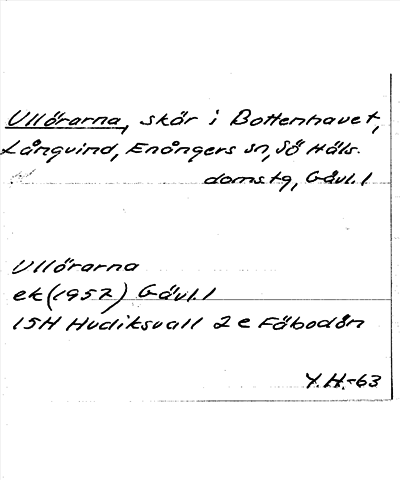 Ullörarna, skär i Bottenhavet,
Långvind, Enångers sn, Sö Häls.
domstg, Gävl. l
Ullörarna
ek (1952) Gävl. l
15H Hudiksvall 2 e Fäbodån
Y.H.-63